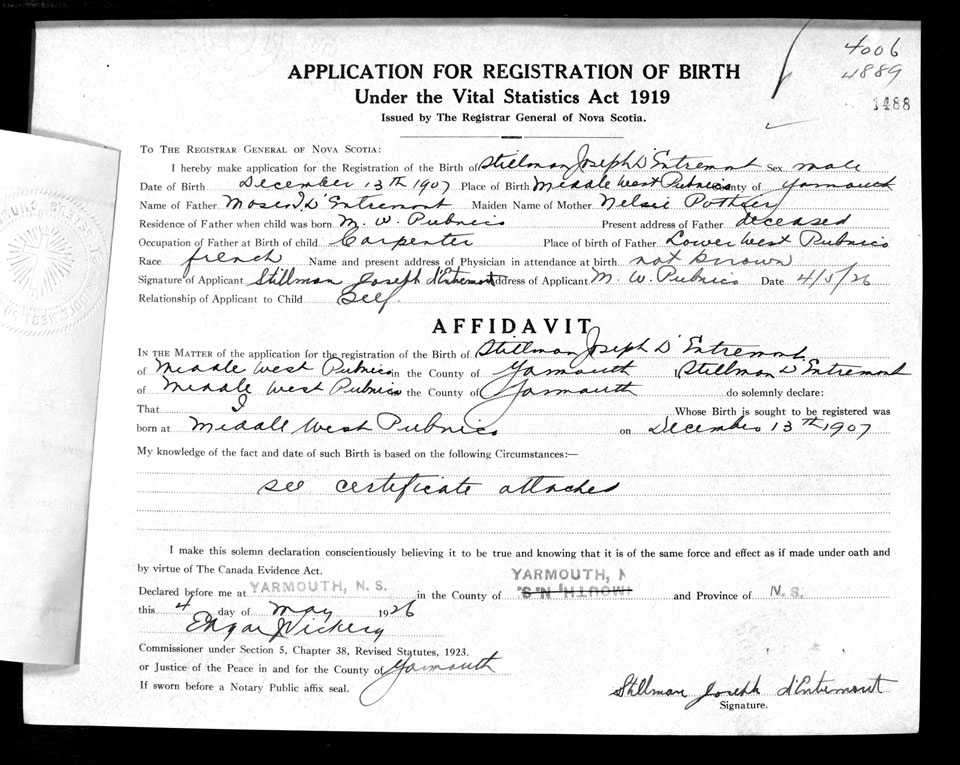 4006
4889
1488
APPLICATION FOR REGISTRATION OF BIRTH
Under the Vital Statistics Act 1919
Issued by The Registrar General of Nova Scotia.
To The Registrar General of Nova Scotia:
I hereby make application for the Registration of the Birth of Stillman Joseph D'Entremont Sex male
Date of Birth December 13th 1907 Place of Birth Middle West Pubnico County of Yarmouth
Name of Father Moses I. D'Entremont Maiden Name of Mother Nelsie Pothier
Residence of Father when child was born M. W. Pubnico Present address of Father deceased
Occupation of Father at Birth of child Carpenter Place of birth of Father Lower West Pubnico
Race french Name and present address of Physician in attendance at birth not known
Signature of Applicant Stillman Joseph d'Entremont Address of Applicant M. W. Pubnico Date 4/5/26
Relationship of Applicant to Child Self
AFFIDAVIT
In the Matter of the application for the registration of the Birth of Stillman Joseph D'Entremont
of Middle West Pubnico in the County of Yarmouth I Stillman D'Entremont
of Middle West Pubnico in the County of Yarmouth do solemnly declare:
That I Whose Birth is sought to be registered was
born at Middle West Pubnico on December 13th 1907
My knowledge of the fact and date of such Birth is based on the following Circumstances:—
see certificate attached
I make this solemn declaration conscientiously believing it to be true and knowing that it is of the same force and effect as if made under oath and
by virtue of The Canada Evidence Act.
YARMOUTH, N
Declared before me at YARMOUTH, N. S. in the County of MOUTH, N.S. and Province of N. S.
this 4 day of May 1926
Edgar J Vickery
Commissioner under Section 5, Chapter 38, Revised Statutes, 1923.
or Justice of the Peace in and for the County of Yarmouth
If sworn before a Notary Public affix seal.
Stillman Joseph d'Entremont
Signature.